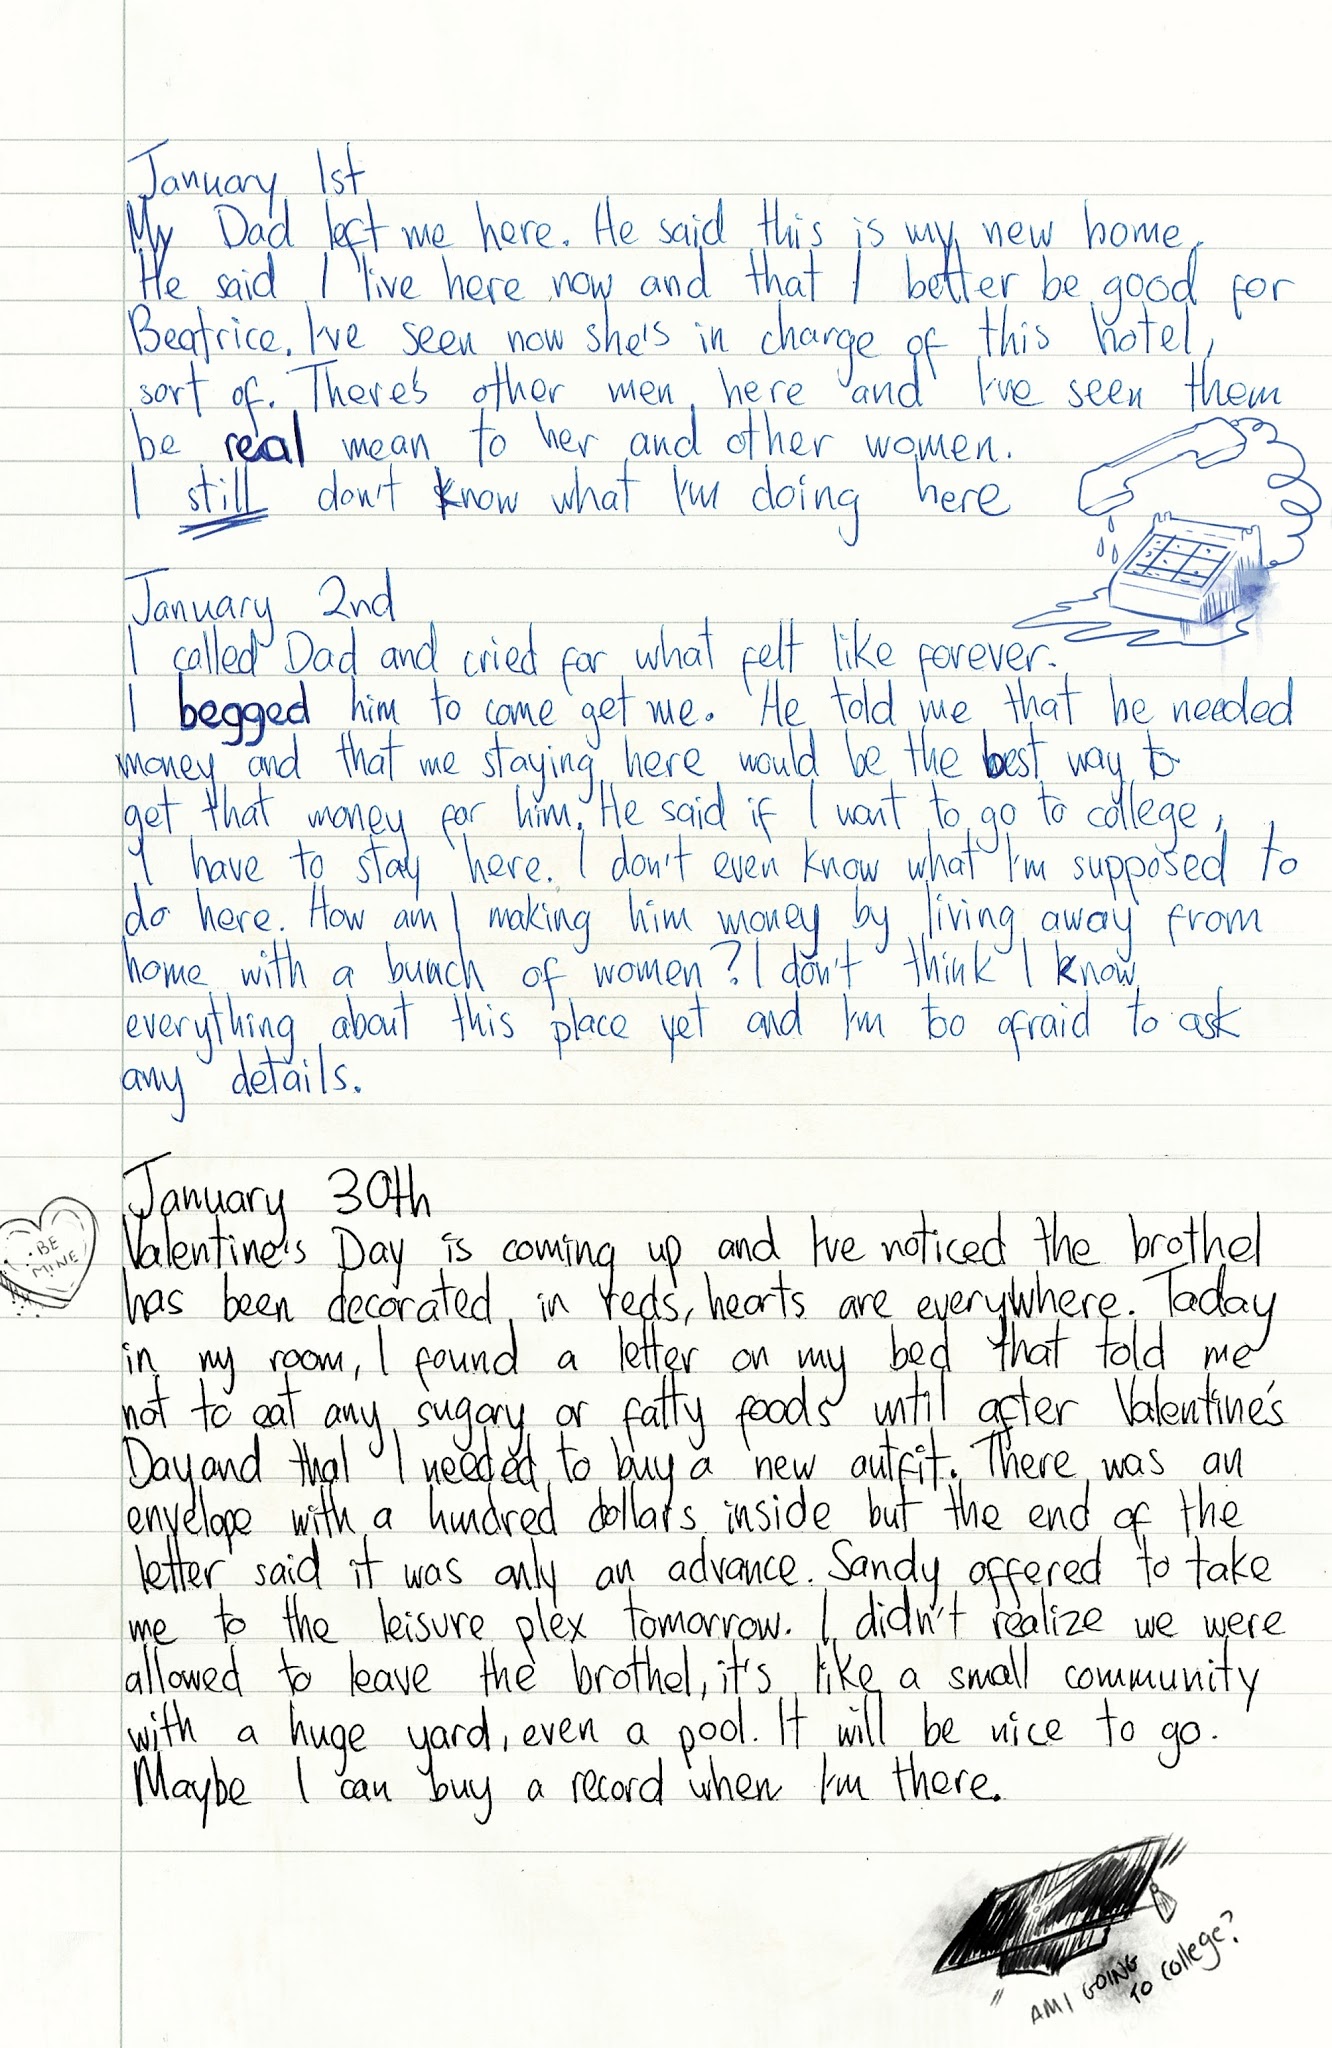 January 1st
My Dad left me here. He said this is my new home.
He said I live here now and that I better be good for
Beatrice. I've seen now she's in charge of this hotel,
sort of. There's other men here and I've seen them
be real mean to her and other women.
I still don't know what I'm doing here
January 2nd
I called Dad and cried for what felt like forever.
I begged him to come get me. He told me that he needed
money and that me staying here would be the best way to
get that money for him. He said if I want to go to college,
I have to stay here. I don't even know what I'm supposed to
do here. How am I making him money by living away from
home with a bunch of women? I don't think I know
everything about this place yet and I'm too afraid to ask
any details.
January 30th
BE
MINE
Valentine's Day is coming up and I've noticed the brothel
has been decorated in reds, hearts are everywhere. Today
in my room, I found a letter on my bed that told me
not to eat any sugary or fatty foods until after Valentine's
Day and that I needed to buy a new outfit. There was an
envelope with a hundred dollars inside but the end of the
letter said it was only an advance. Sandy offered to take
me to the leisure plex tomorrow. I didn't realize we were
allowed to leave the brothel, it's like a small community
with a huge yard, even a pool. It will be nice to go.
Maybe I can buy a record when I'm there.
AM I GOING
TO College?